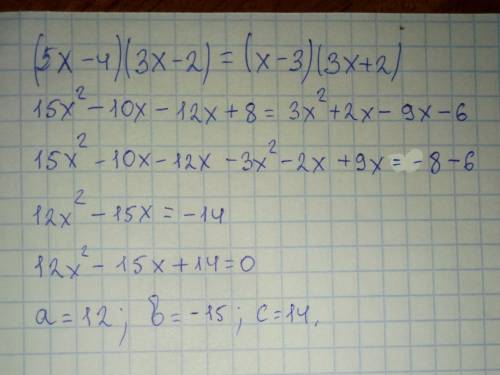 (5x-4)(3x-2)=(x-3)(3x+2)
15x²-10x-12x+8=3x²+2x-9x-6
15x²-10x-12x-3x²-2x+9x=-8-6
12x²-15x=-14
12x²-15x+14=0
a=12; b=-15; c=14.